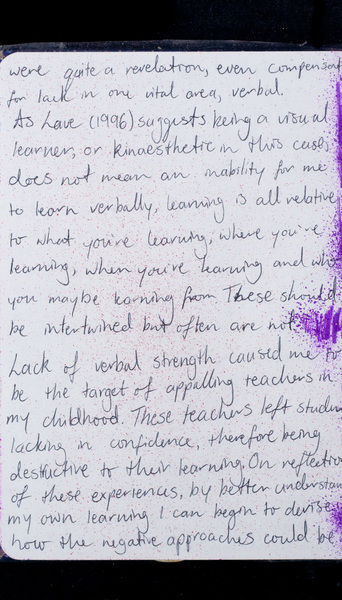 were quite a revelation, even compensat
for lack in one vital area, verbal.
As Lave (1996) suggests being a visual
learner, or kinaesthetic in this case,
does not mean an inability for me
to learn verbally, learning is all relative
to what you're learning, where you're
learning, when you're learning and who
you maybe learning from. These should
be intertwined but often are not.
Lack of verbal strength caused me to
be the target of appalling teachers in
my childhood. These teachers left studen
lacking in confidence, therefore being
destructive to their learning. On reflectio
of these experiences, by better understan
my own learning I can begin to devise
how the negative approaches could be